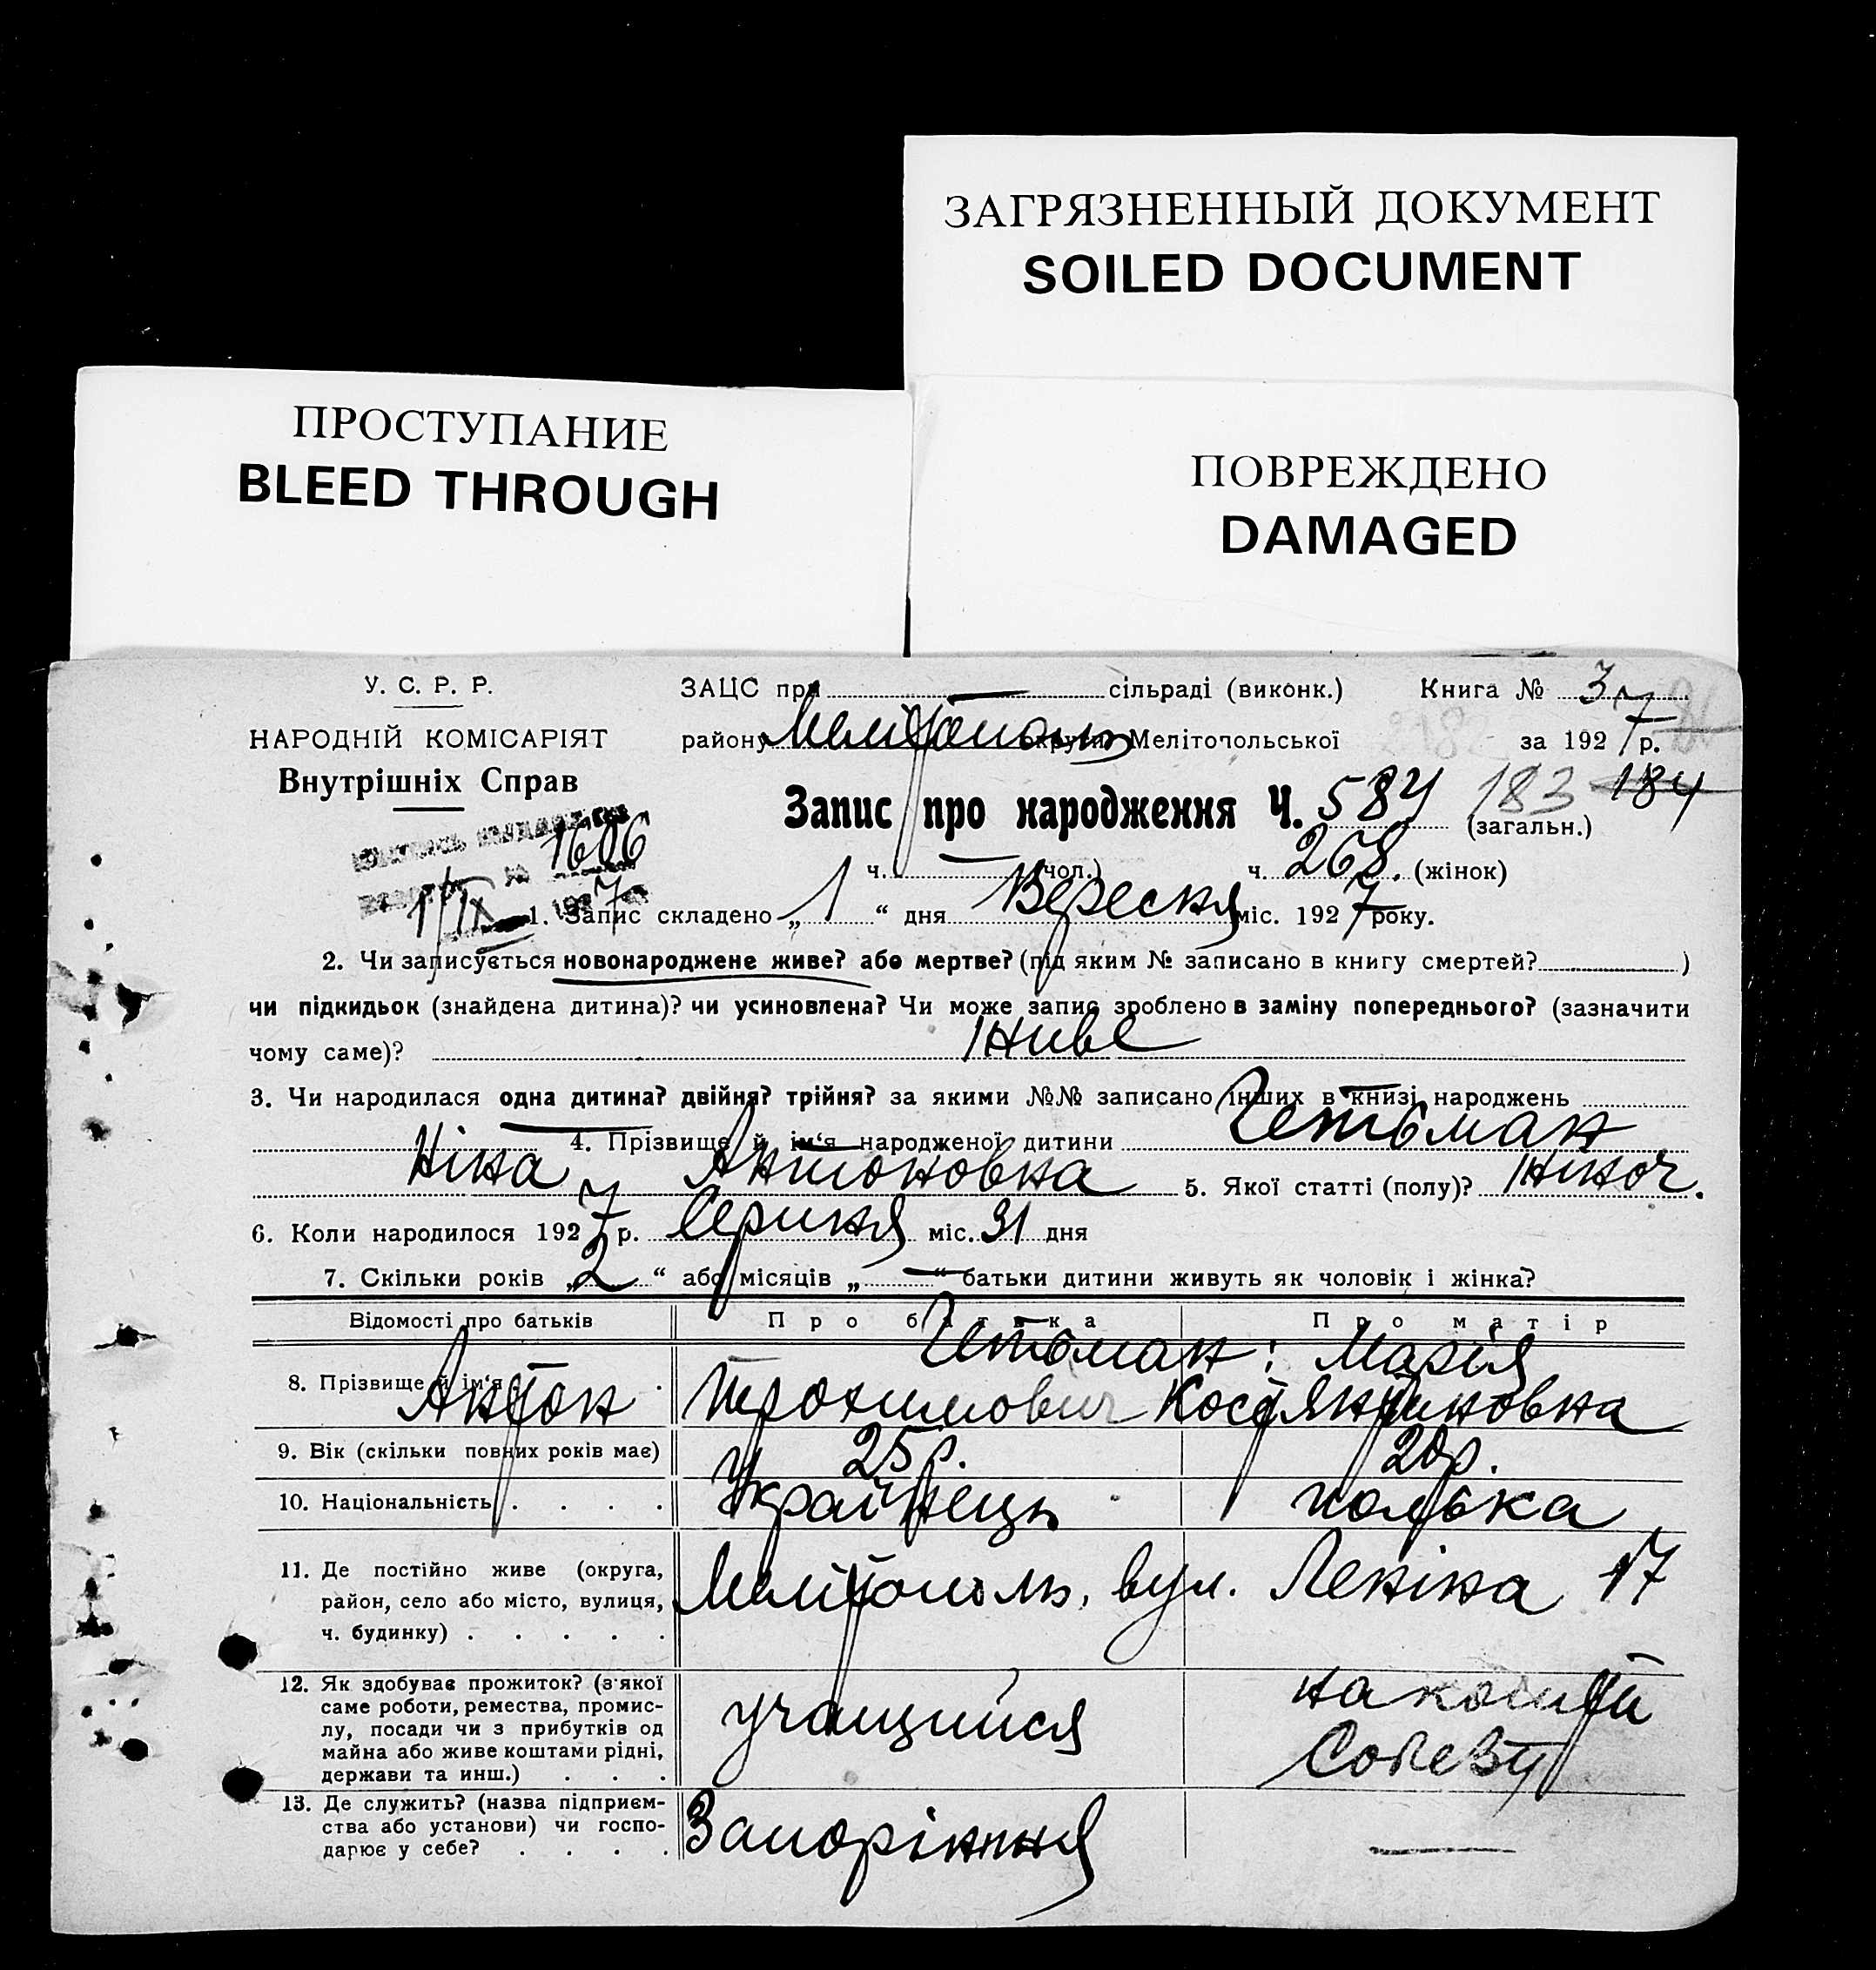 ЗАГРЯЗНЕННЫЙ ДОКУМЕНТ
SOILED DOCUMENT
ПРОСТУПАНИЕ
BLEED THROUGH
ПОВРЕЖДЕНО
DAMAGED
У. С. Р. Р.
НАРОДНІЙ КОМІСАРІЯТ
Внутрішніх Справ
ЗАЦС при — сільраді (виконк.) Книга № 3
району Мелітополь округи Мелітопольської за 1927 р.
Запис про народження Ч. 584 183 184
(загальн.)
1606
ч. — (чол.) ч. 268. (жінок)
1/IX 1927
1. Запис складено „ 1 “ дня Вересня міс. 1927 року.
2. Чи записується новонароджене живе? або мертве? (під яким № записано в книгу смертей? )
чи підкидьок (знайдена дитина)? чи усиновлена? Чи може запис зроблено в заміну попереднього? (зазначити
чому саме)? Живе
3. Чи народилася одна дитина? двійня? трійня? за якими №№ записано інших в книзі народжень —
4. Прізвище й ім‘я народженої дитини Гетьман
Ніна Антоновна 5. Якої статті (полу)? жіноч.
6. Коли народилося 1927 р. Серпня міс. 31 дня
7. Скільки років „ 2 “ або місяців „ — “ батьки дитини живуть як чоловік і жінка?
Відомості про батьків Про батька Про матір
8. Прізвище й ім‘я Гетьман Антон Трохимович Марія Костянтиновна
9. Вік (скільки повних років має) 25 р. 20 р.
10. Національність . . . . Українець полька
11. Де постійно живе (округа,
район, село або місто, вулиця,
ч. будинку) . . . . .
Мелітополь, вул. Леніна 17
12. Як здобуває прожиток? (з якої
саме роботи, ремества, промис-
лу, посади чи з прибутків од
майна або живе коштами рідні,
держави та инш.) . . .
учащийся
на кошти
13. Де служить? (назва підприєм-
ства або установи) чи госпо-
дарює у себе? . . . .
Запоріжжя —